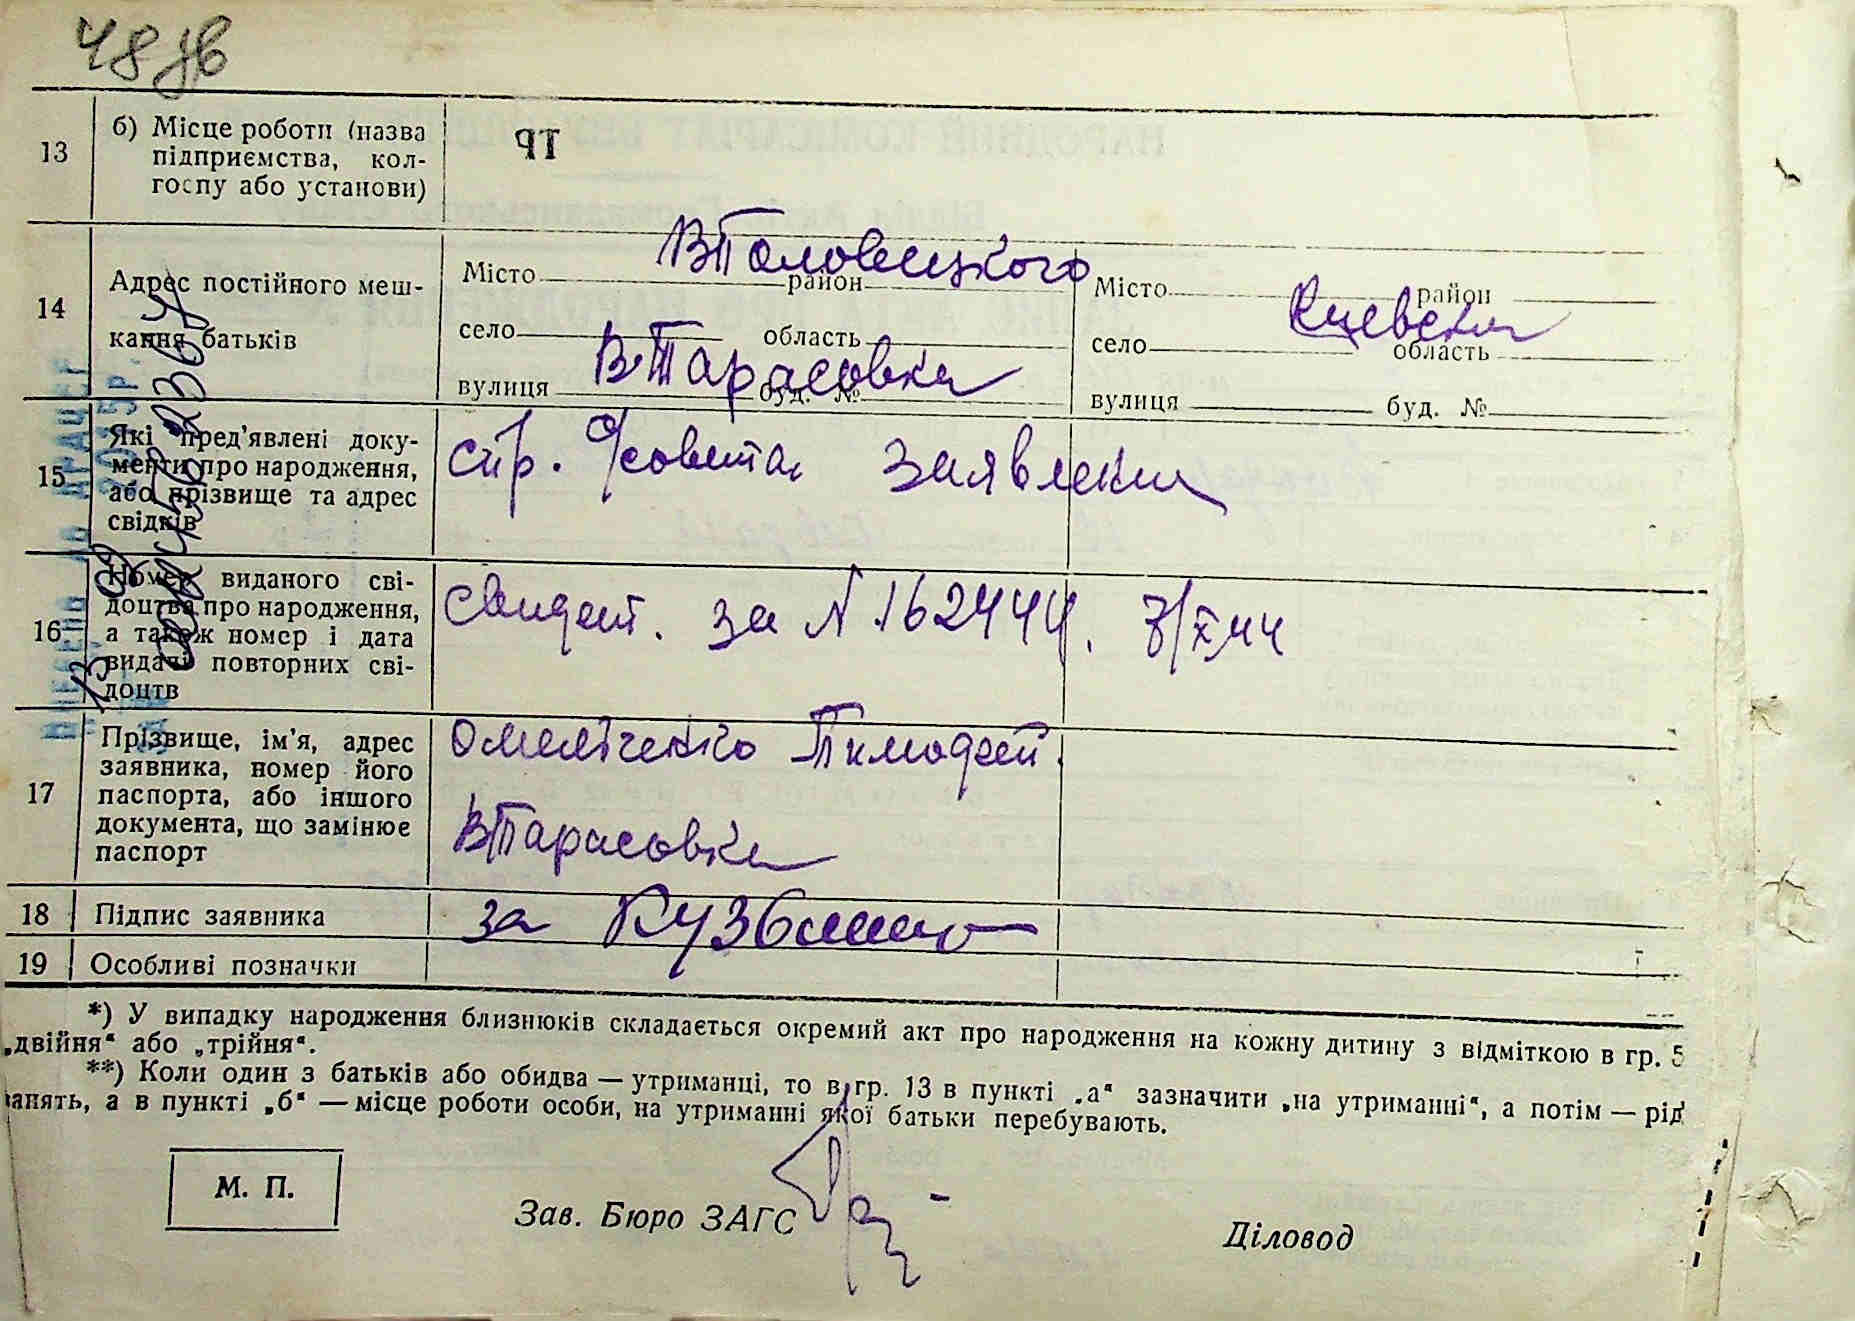 48 зв
13 б) Місце роботи (назва
підприємства, кол-
госпу або установи)
14 Адрес постійного меш-
кання батьків
Місто район
В Половецкого
село область
В Тарасовка
вулиця буд. №
Місто район
Киевская
село область
вулиця буд. №
15 Які пред'явлені доку-
менти про народження,
або прізвище та адрес
свідків
спр. с/совета заявления
16 Номер виданого сві-
доцтва про народження,
а також номер і дата
видачі повторних сві-
доцтв
свидет. за N 162444. 7/X 44
17 Прізвище, ім'я, адрес
заявника, номер його
паспорта, або іншого
документа, що замінює
паспорт
Омельченко Тимофей
В Тарасовка
18 Підпис заявника
за
19 Особливі позначки
*) У випадку народження близнюків складається окремий акт про народження на кожну дитину з відміткою в гр. 5
„двійня“ або „трійня“.
**) Коли один з батьків або обидва — утриманці, то в гр. 13 в пункті „а“ зазначити „на утриманні“, а потім — рід
занять, а в пункті „б“ — місце роботи особи, на утриманні якої батьки перебувають.
М. П.
Зав. Бюро ЗАГС
Діловод